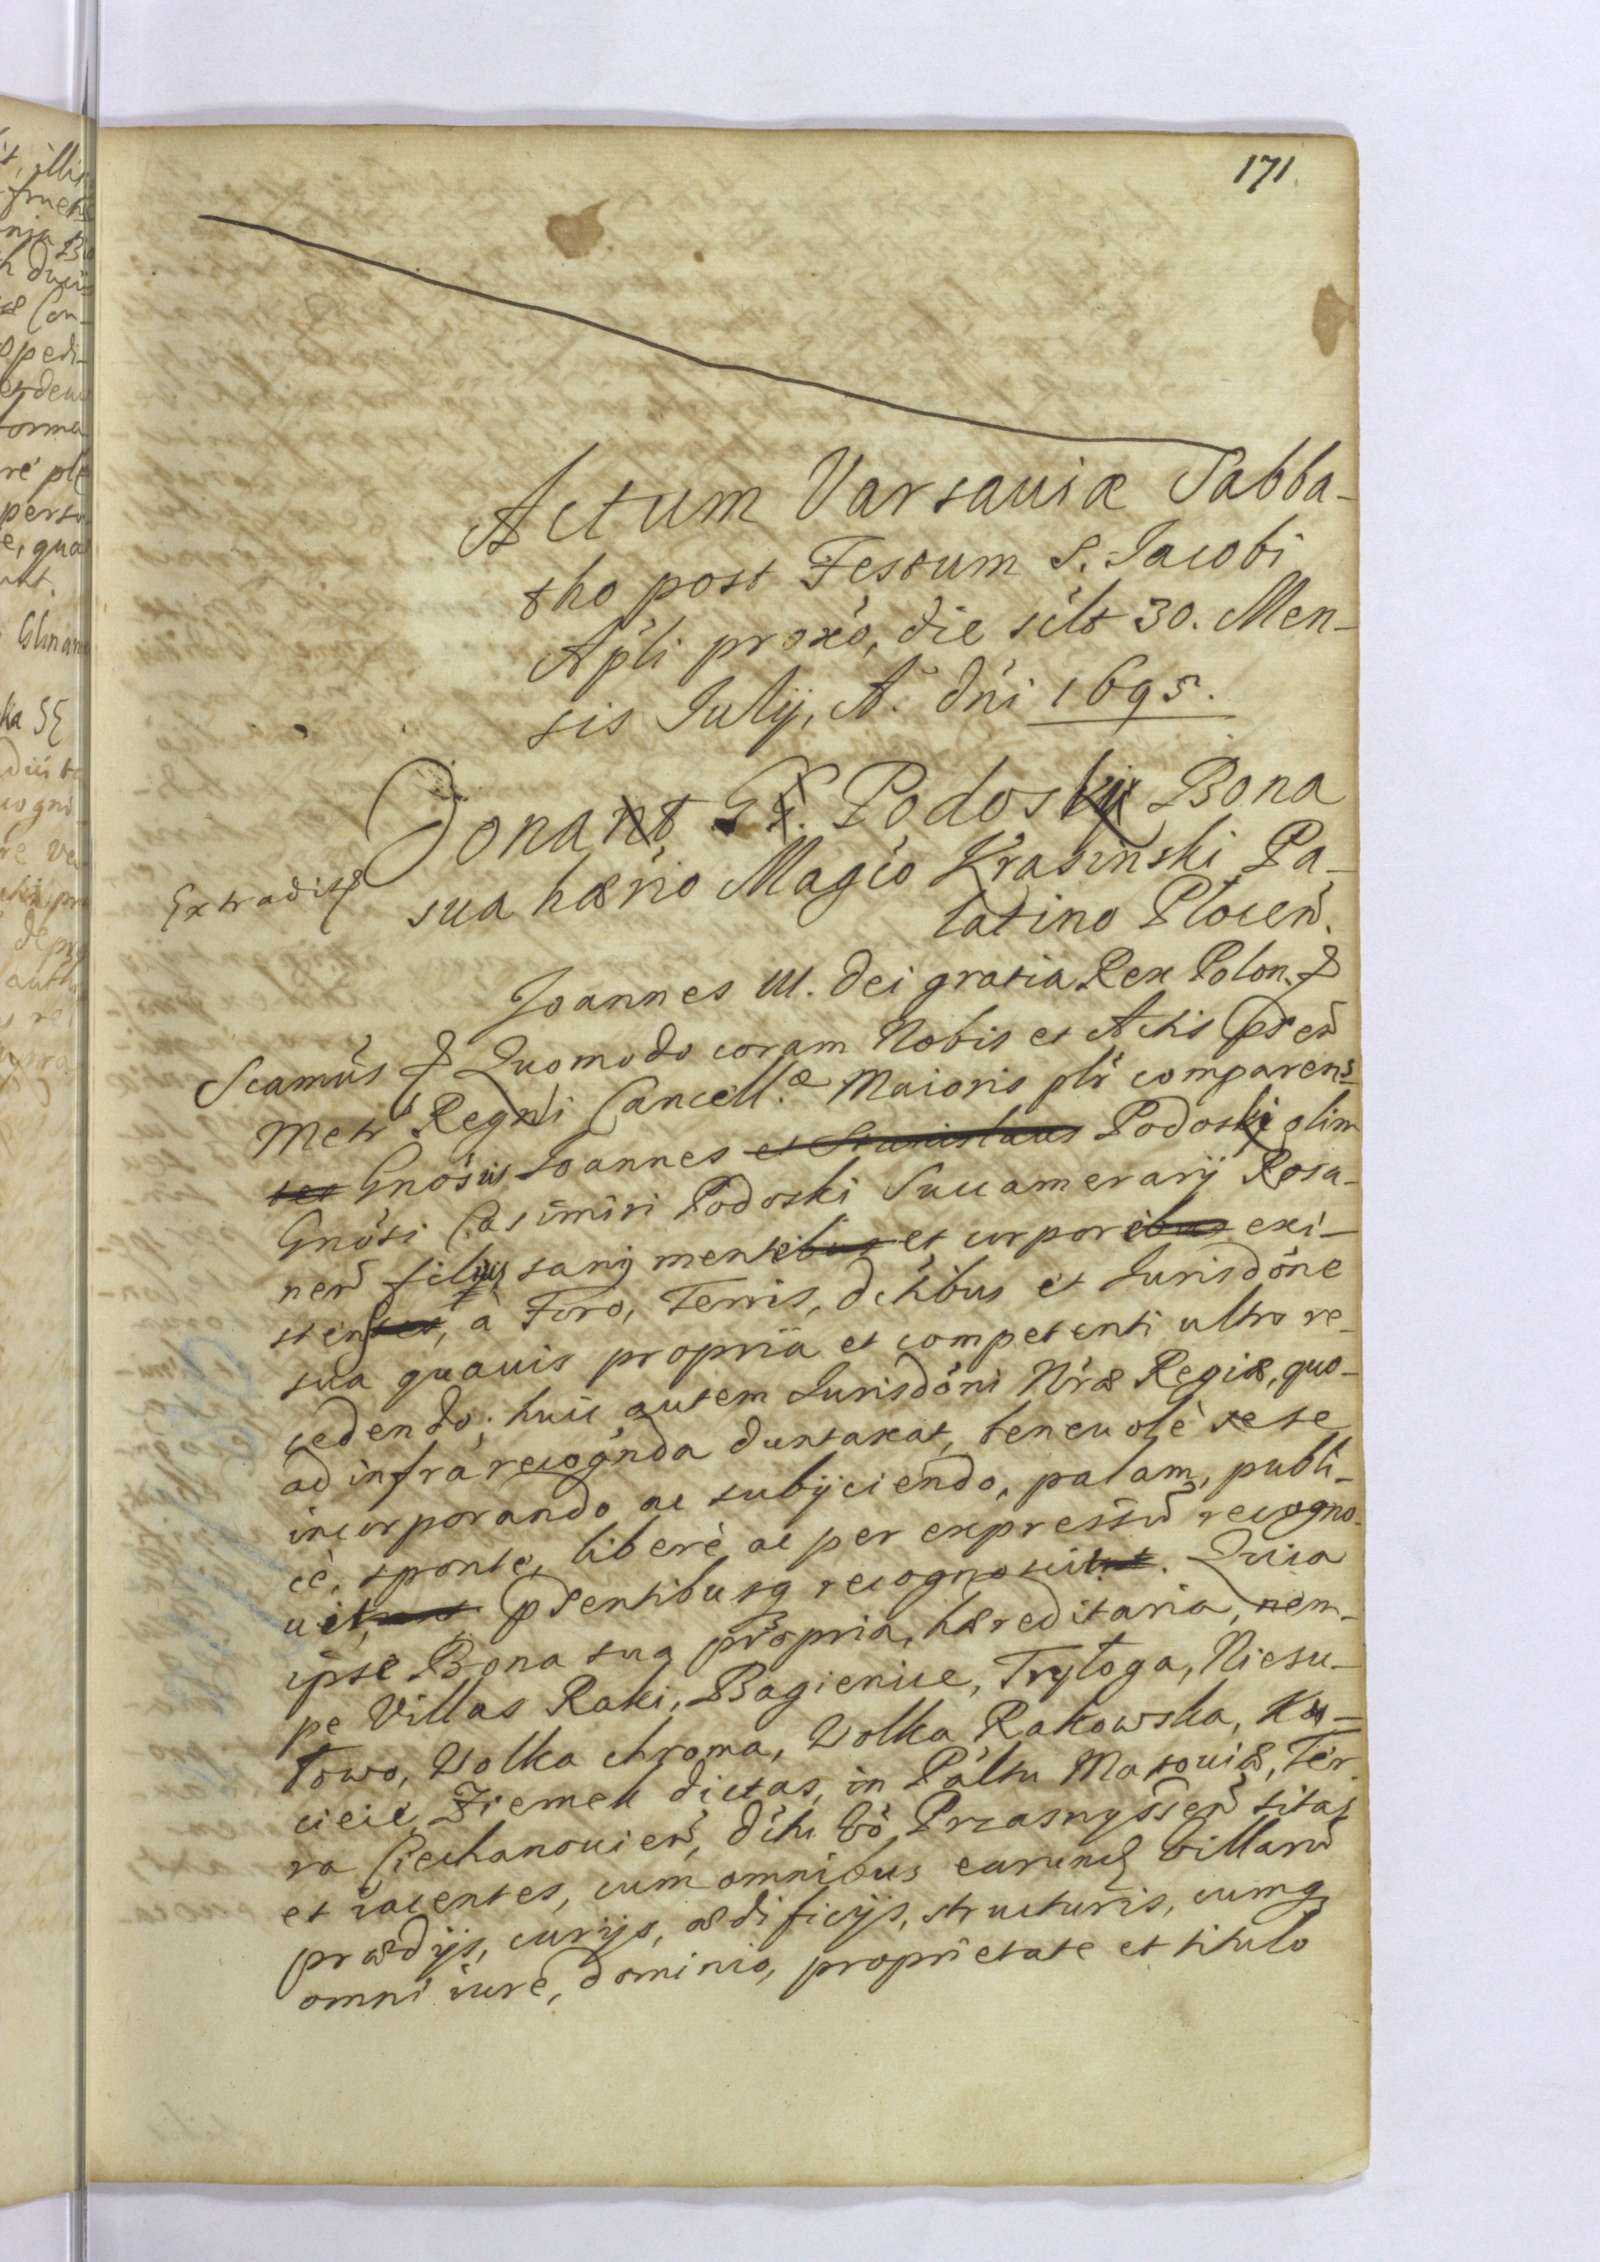 171
Actum Varsauiæ Sabba-
tho post Festum S. Jacobi
Apli proxo, die silt 30. Men-
sis Julij, A. dni 1695.
Donat G. Podoski Bona
sua hærio Magco Krasinski Pa-
Extradit
latino Plocen.
Joannes III. Dei gratia Rex Polon.
Scamus Quomodo coram Nobis et Actis præn
Metr Regni Cancell.æ Maioris plr comparens
Gnosus Joannes et Stanislaus Podoski olim
Gnosi Casimiri Podoski Succamerarij Rosa-
nen filius sanij mentibus et corporibus exi-
stens, à Foro, Terris, dctibus et Jurisdone
sua quauis propria et competenti ultro re-
cedendo; huic autem Jurisdoni Nræ Regiæ, quo-
ad infra recognda duntaxat, beneuolè sese
incorporando ac subijciendo, palam, publi-
cè, sponte, liberè, ac per expressũ recogno-
uit, psentibusq recognoscit. Quia
ipse Bona sua propria, hæreditaria, nem-
pe Villas Raki, Bagienice, Trytoga, Niesu-
łowo, Wolka chroma, Wolka Rakowska, Ku-
cieie Ziemek dictas, in Paltu Masouiæ, Ter
ra Ciechanouien, dctu vo Przasnyssen sitas
et iacentes, cum omnibus earund Villarũ
prædijs, curijs, ædificijs, structuris, cumq
omni iure, dominio, proprietate et titulo